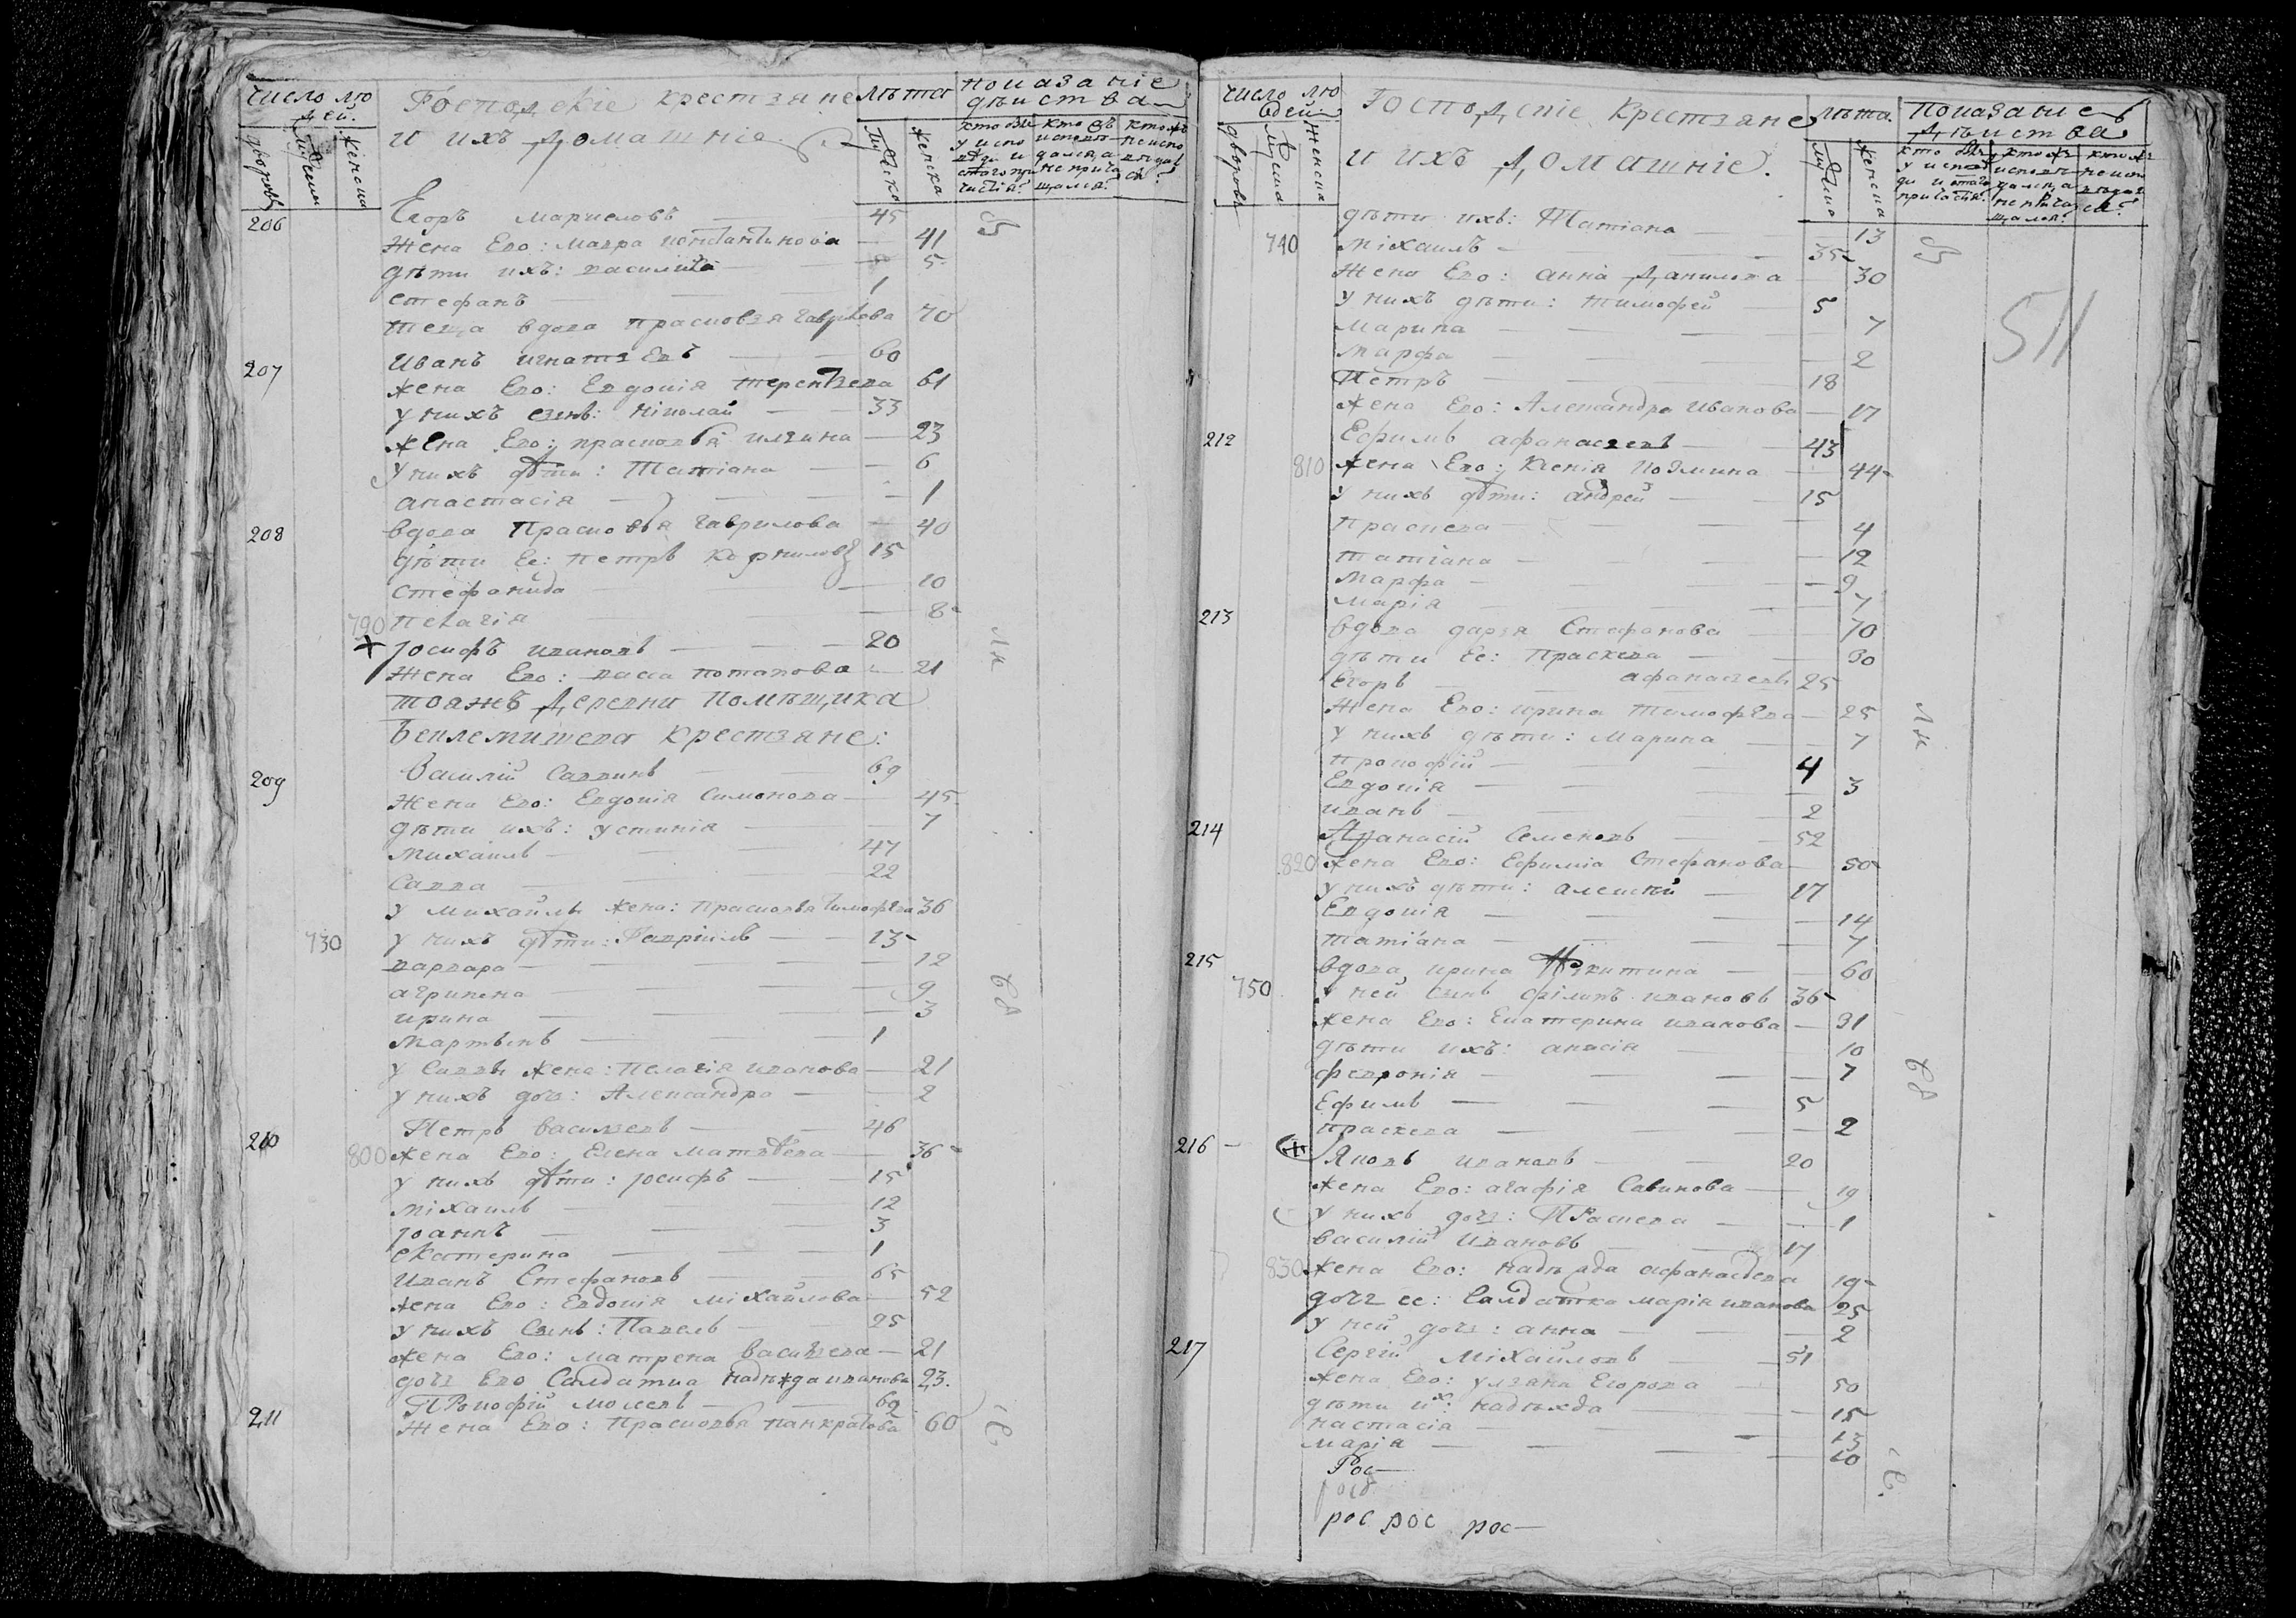 Число лю
дей.
Господскіе крестьяне
и ихъ домашніе.
лѣта
показаніе
дѣиства
дворовъ
мужеска
женска
мужеска
женска
кто бы
у испо
вѣди и
стаго при
частія?
кто
исповѣ
дался, а
не прича
щался?
кто
неиспо
вѣдав
ся?
206 Егоръ Маркеловъ — 45
жена Его: Мавра Константинова — 41
дѣти ихъ: Василиса — 5
стефанъ — 1
теща вдова прасковья гаврилова 70
207 Иванъ игнатьевъ — 60
жена Его: Евдокія терентьева 61
у нихъ сынъ: ніколай — 33
жена Его: прасковья ильина — 23
у нихъ дѣти: Татіана — 6
анастасія — 1
208 вдова Прасковья гаврилова — 40
дѣти Ее: петръ корниловъ 15
стефанида — 10
790 пелагія — 8
+ Іосифъ ивановъ — 20
жена Его: васса потапова — 21
тояжъ деревни помѣщика
Беклемишева крестьяне:
209 Василій Саввинъ — 69
жена Его: Евдокія Симонова — 45
дѣти ихъ: устинія — 7
михаилъ — 47
Савва — 22
у михаилы жена: Прасковья тимофѣева 36
730 у нихъ дѣти: Гавріилъ — 13
варвара — 12
агрипена — 9
ирина — 3
мартынъ — 1
у Саввы жена: Пелагія иванова — 21
у нихъ дочь: Александра — 2
210 Петръ васильевъ — 46
800 жена Его: Елена матвѣева — 36
у нихъ дѣти: Іосифъ — 15
міхаилъ — 12
Іоаннъ — 3
екатерина — 1
иванъ Стефановъ — 65
жена Его: Евдокія міхайлова — 52
у нихъ сынъ: Павелъ — 25
жена Его: матрена васильева — 21
дочь Его Салдатка надѣжда иванова 23.
211 Прокофій мосеевъ — 69
жена Его: Прасковья панкратова 60
Число лю
дей
Господскіе крестьяне
и ихъ домашніе.
лѣта.
показаніе
дѣиства
дворовъ
мужеска
женска
мужеска
женска
511
дѣти ихъ: Татіана — 13
740 міхаилъ — 35
жена Его: анна Данилова — 30
у нихъ дѣти: тимофей — 5
марина — 7
марфа — 2
Петръ — 18
жена Его: Александра иванова — 17
212 Ефимъ афанасьевъ — 43
810 жена Его: Ксенія козмина — 44
у нихъ дѣти: андрей — 15
Праскева — 4
татіана — 12
марфа — 9
марія — 7
213 вдова дарья Стефанова — 70
дѣти Ее: Праскева — 30
Егоръ афанасьевъ 25
жена Его: ирина тимофѣева — 25
у нихъ дѣти: марина — 7
прокофій — 4
Евдокія — 3
иванъ — 2
214 Афанасій Семеновъ — 52
820 жена Его: Ефимія Стефанова — 50
у нихъ дѣти: алексѣй — 17
Евдокія — 14
татіана — 7
215 вдова ирина Никитина — 60
750 у ней сынъ филипъ ивановъ 36
жена Его: Екатерина иванова — 31
дѣти ихъ: анисія — 10
февронія — 7
Ефимъ — 5
праскева — 2
216 Яковъ ивановъ — 20
жена Его: агафія Савинова — 19
у нихъ дочь: Праскева — 1
василій ивановъ — 17
830 жена Его: надѣжда афанасьева 19
дочь ее: Салдатка марія иванова 25
у ней дочь: анна — 2
217 Сергій міхайловъ — 51
жена Его: ульяна Егорова — 50
дѣти ихъ: надѣжда — 15
настасія — 13
марія — 10
Рос
рос рос рос